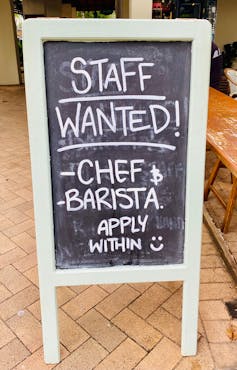 STAFF
WANTED!
-CHEF &
-BARISTA.
APPLY
WITHIN ☺